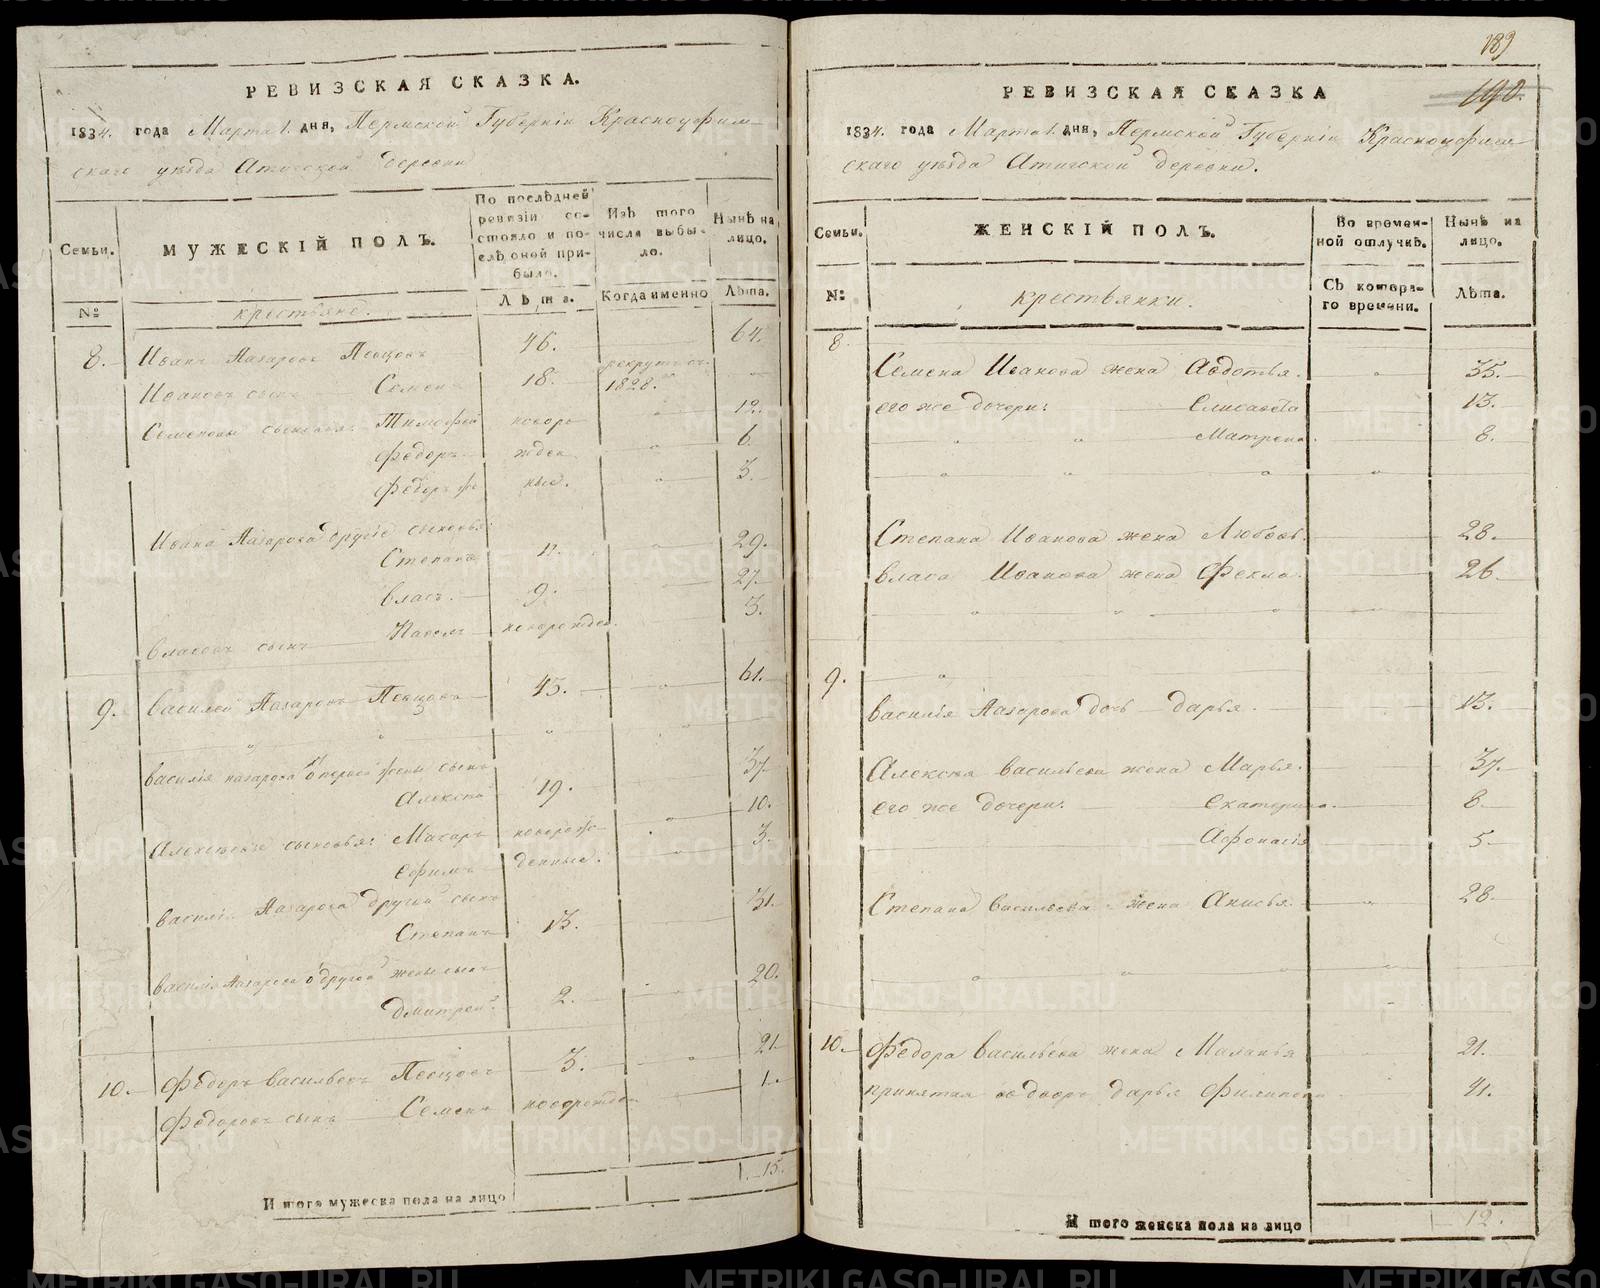 РЕВИЗСКАЯ СКАЗКА.
1834. года Марта 1. дня, Пермской Губерніи Красноуфим-
скаго уѣзда Атигской деревни
Семьи.
МУЖЕСКІЙ ПОЛЪ.
По послѣдней ревизіи состояло и послѣ оной прибыло.
Изъ того числа выбыло.
Нынѣ на лицо.
№
крестьяне.
Лѣта.
Когда именно
Лѣта.
8. Иванъ Лазаревъ Певцовъ 46. 64.
Ивановъ сынъ Семенъ 18. рекрутъ съ 1828.
Семеновы сыновья: Тимофей новоро 12.
Федоръ жден 6.
Федоръ же ные. 3.
Ивана Лазарева другіе сыновья:
Степанъ 11. 29.
Власъ. 9. 27.
Власовъ сынъ Павелъ новорожден. 3.
9. Василей Лазаревъ Певцовъ 45. 61.
Василія Лазарева о первой жены сынъ
Алексей 19. 37.
Алексеевы сыновья: Макаръ новорож- 10.
Ефимъ денные. 3.
Василія Лазарева другой сынъ
Степанъ 13. 31.
Василія Лазарева о другой жены сынъ
Дмитрей. 2. 20.
10. Федоръ Васильевъ Певцовъ 3. 21.
Федоровъ сынъ Семенъ новорожден 1.
15.
И того мужеска пола на лицо
189
190.
РЕВИЗСКАЯ СКАЗКА
1834. года Марта 1. дня, Пермской Губерніи Красноуфим-
скаго уѣзда Атигской деревни.
Семьи.
ЖЕНСКІЙ ПОЛЪ.
Во временной отлучкѣ.
Нынѣ на лицо.
№:
крестьянки.
Съ котораго времени.
Лѣта.
8.
Семена Иванова жена Авдотья. 35.
его же дочери: Елисавета 13.
Матрена. 8.
Степана Иванова жена Любовь. 28.
Власа Иванова жена Фекла. 26.
9.
Василія Лазарева дочь Дарья. 13.
Алексѣя Васильева жена Марья. 37.
его же дочери: Екатерина. 8.
Афонасія 5.
Степана Васильева жена Анисья. 28.
10. Федора Васильева жена Маланья 21.
принятая во дворъ Дарья Филипова 41.
И того женска пола на лицо 12.
METRIKI.GASO-URAL.RU